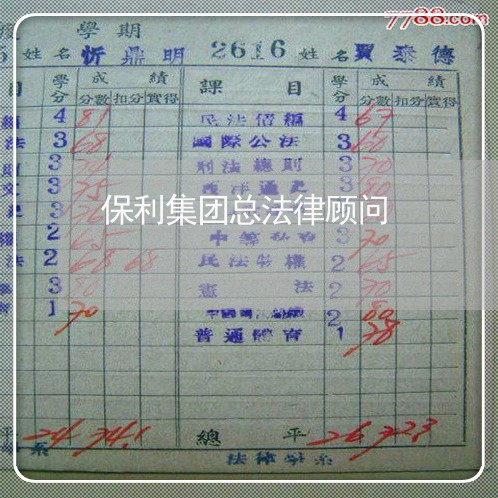 7788.com
學期
姓名 忻鼎明 2616 姓名 賈泰德
目 學分 成績 課目 學分 成績
分數 扣分 實得 分數 扣分 實得
4 81 民法債編 4 67
法 3 68 國際公法 3 60
3 刑法總則 3 70
文 3 75 西洋通史 3 80
3
保利集团总法律顾问
2 65 3 70
法 2 68 68 民法物權 2 65
3 80 憲法 2 70
1 70 2 80
普通體育 1 78
平 24 74.1 總平 26 72.3
系 法律學系